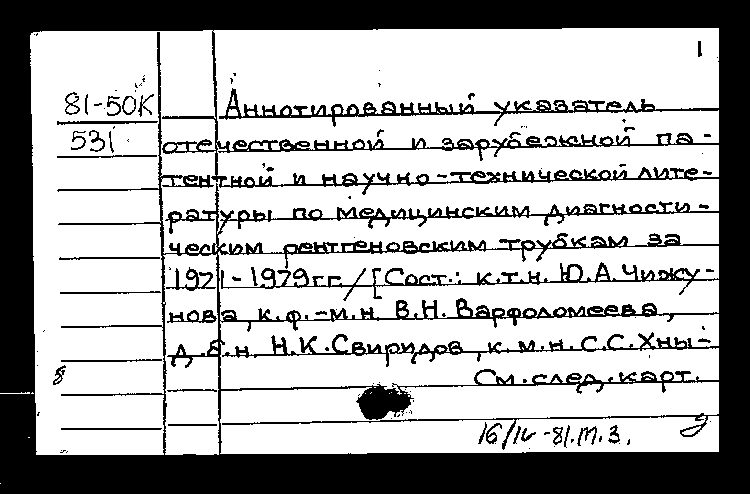 1
81-50К
531
Аннотированный указатель
отечественной и зарубежной па-
тентной и научно-технической лите-
ратуры по медицинским диагности-
ческим рентгеновским трубкам за
1971-1979 гг. / [Сост.: к.т.н. Ю.А. Чижу-
нова, к.ф.-м.н. В.Н. Варфоломеева,
д.б.н. Н.К. Свиридов, к.м.н. С.С. Хны-
8
См. след. карт.
16/IV-81. М.З.